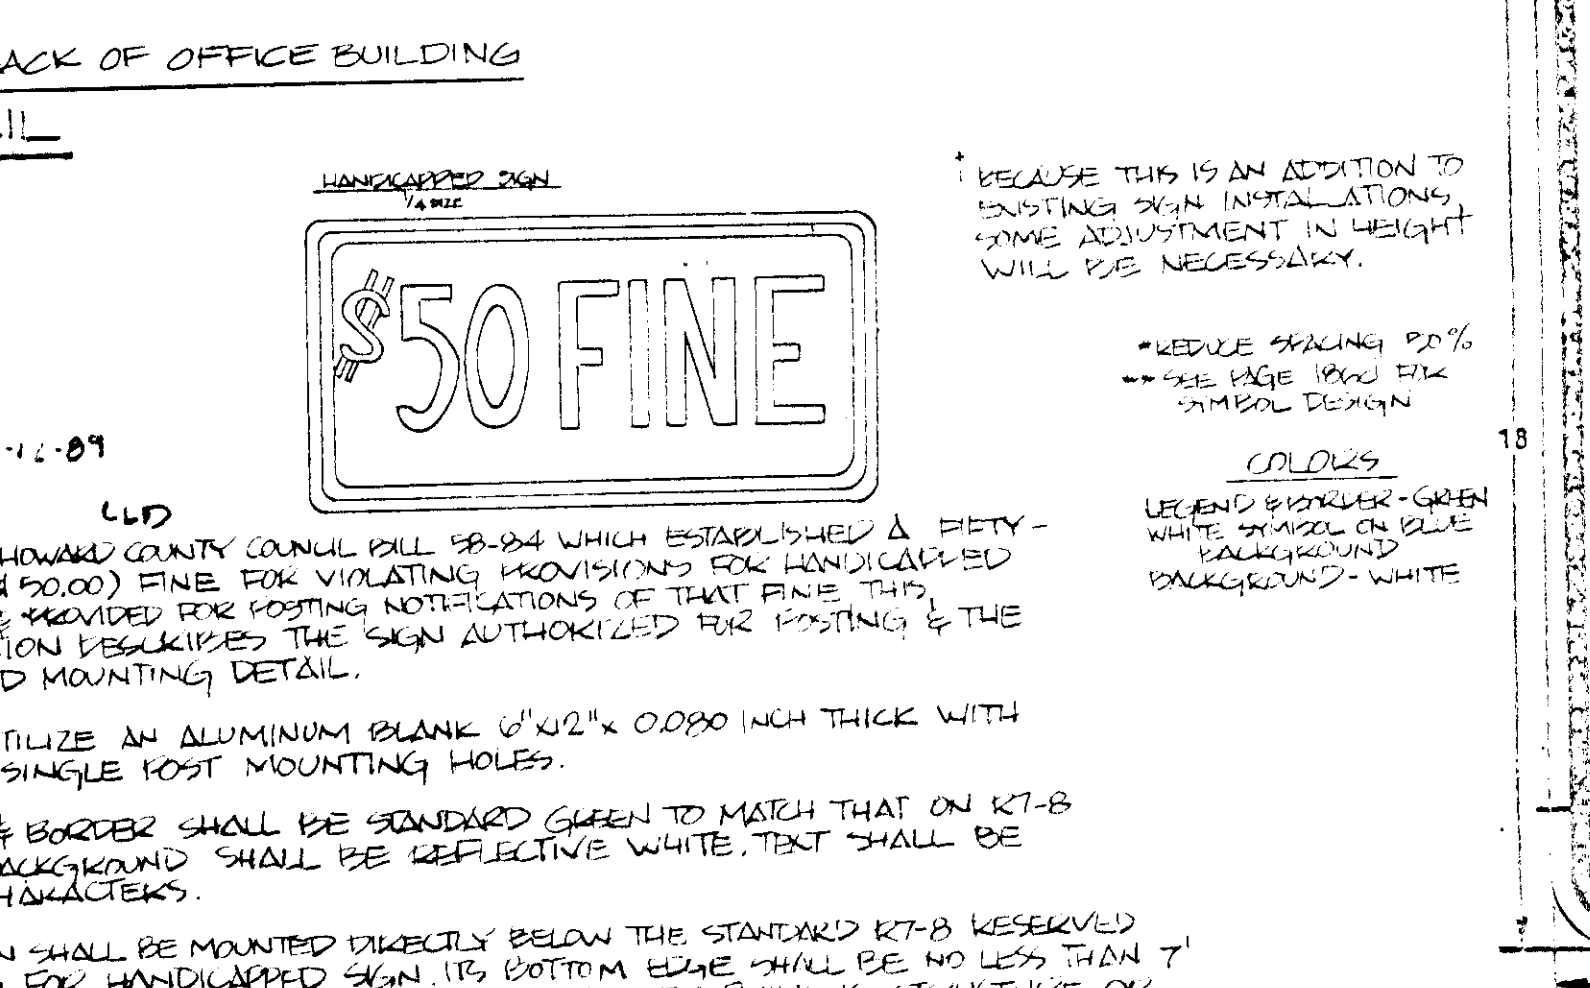 ACK OF OFFICE BUILDING
IL
HANDICAPPED SIGN
1/4 SIZE
$50 FINE
BECAUSE THIS IS AN ADDITION TO
EXISTING SIGN INSTALLATIONS,
SOME ADJUSTMENT IN HEIGHT
WILL BE NECESSARY.
*REDUCE SPACING 50%
** SEE PAGE FOR
SYMBOL DESIGN
18
COLORS
LEGEND & BORDER - GREEN
WHITE SYMBOL ON BLUE
BACKGROUND
BACKGROUND - WHITE
-89
LLD
HOWARD COUNTY COUNCIL BILL 58-84 WHICH ESTABLISHED A FIFTY-
($50.00) FINE FOR VIOLATING PROVISIONS FOR HANDICAPPED
PROVIDED FOR POSTING NOTIFICATIONS OF THAT FINE. THIS
TION DESCRIBES THE SIGN AUTHORIZED FOR POSTING & THE
D MOUNTING DETAIL.
TILIZE AN ALUMINUM BLANK 6"x12"x 0.080 INCH THICK WITH
SINGLE POST MOUNTING HOLES.
& BORDER SHALL BE STANDARD GREEN TO MATCH THAT ON R7-8
ACKGROUND SHALL BE REFLECTIVE WHITE. TEXT SHALL BE
HARACTERS.
N SHALL BE MOUNTED DIRECTLY BELOW THE STANDARD R7-8 RESERVED
FOR HANDICAPPED SIGN. ITS BOTTOM EDGE SHALL BE NO LESS THAN 7'
STRUCTURE OR